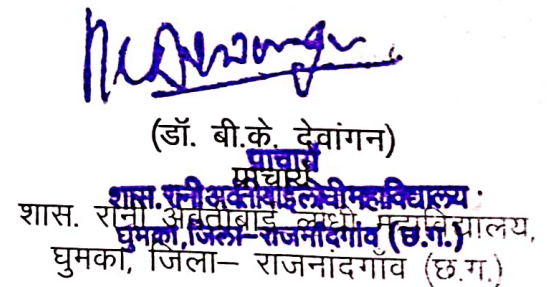 (डॉ. बी.के. देवांगन)
प्राचार्य
प्राचार्य
शास. रानी अवंतीबाई लोधी महाविद्यालय
शास. रानी अवंतीबाई लोधी महाविद्यालय,
घुमका, जिला-राजनांदगांव (छ.ग.)
घुमका, जिला– राजनांदगाँव (छ.ग.)